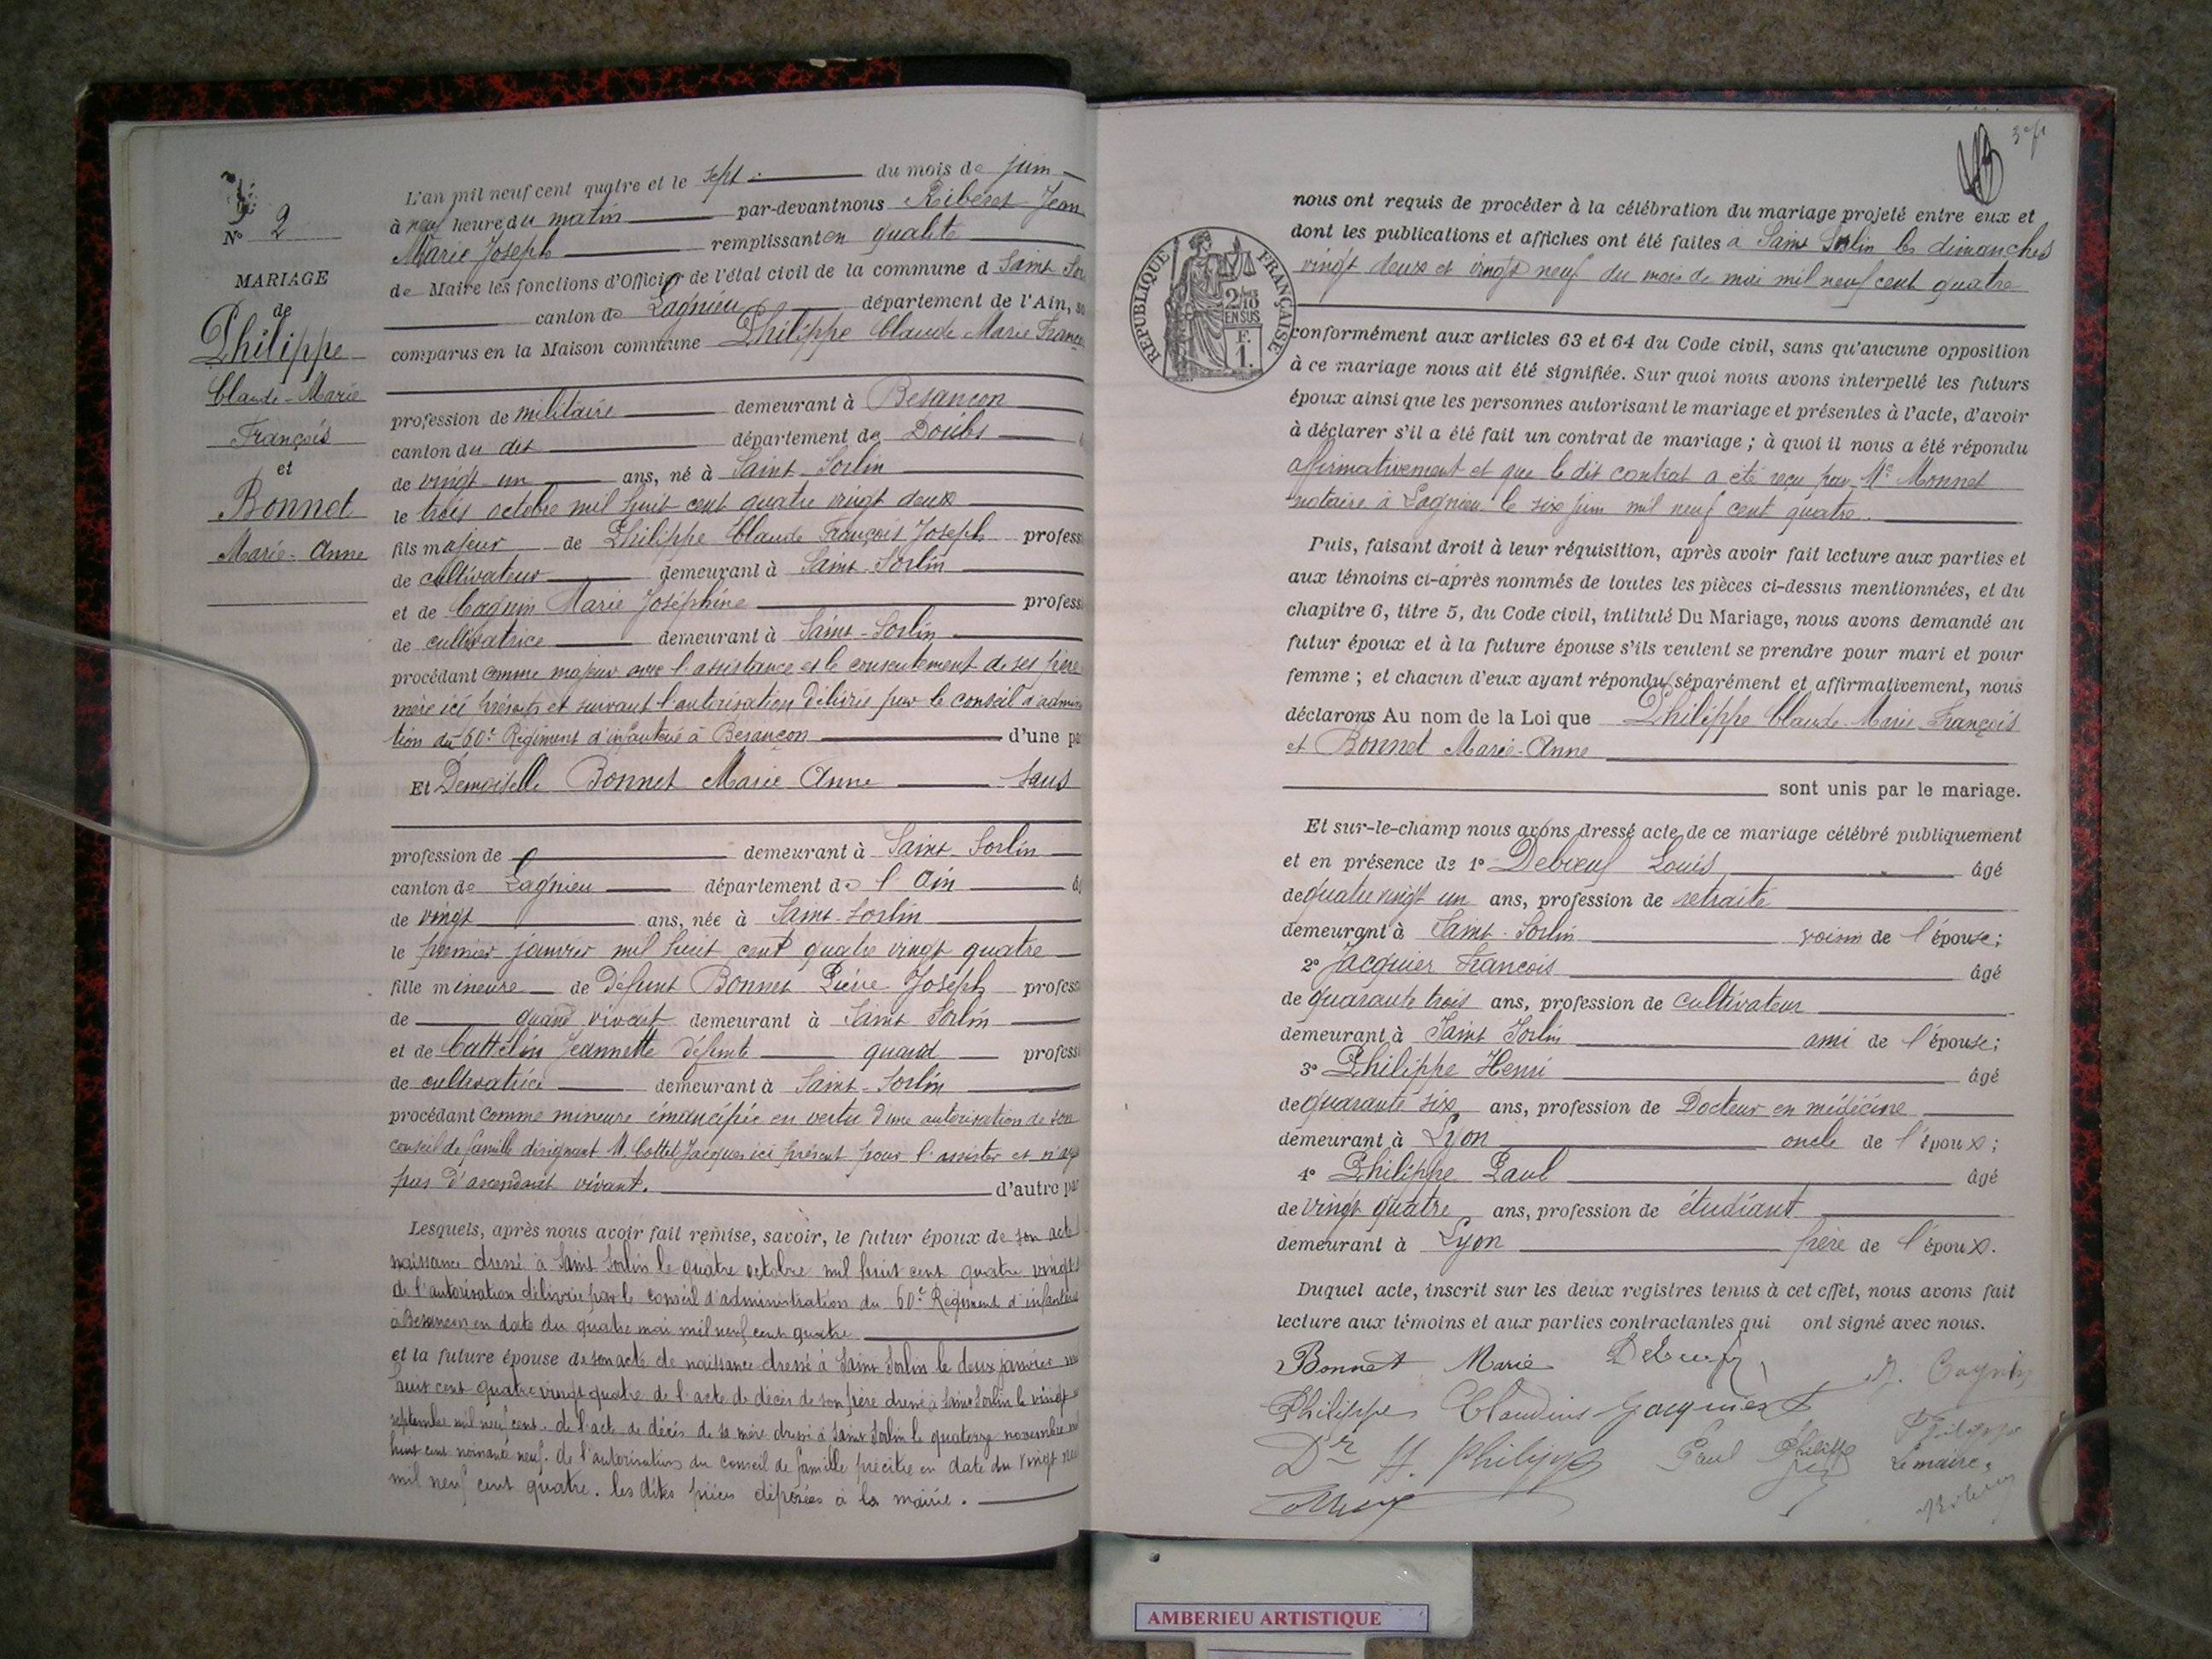 N° 2
MARIAGE
de
Philippe
Claude-Marie
François
et
Bonnet
Marie-Anne
L'an mil neuf cent quatre et le sept du mois de juin
à neuf heure du matin par-devant nous Riberet Jean
Marie Joseph remplissant en qualité
de Maire les fonctions d'Officier de l'état civil de la commune d Saint Sor
canton de Lagnieu département de l'Ain, so
comparus en la Maison commune Philippe Claude Marie Franço
profession de militaire demeurant à Besançon
canton du dit département de Doubs
de vingt un ans, né à Saint-Sorlin
le trois octobre mil huit cent quatre vingt deux
fils majeur de Philippe Claude François Joseph profess
de cultivateur demeurant à Saint-Sorlin
et de Caguin Marie Joséphine profess
de cultivatrice demeurant à Saint-Sorlin
procédant comme majeur avec l'assistance et le consentement de ses père
mère ici présents et suivant l'autorisation délivrée par le conseil d'admin
tion du 60e Régiment d'infanterie à Besançon d'une pa
Et Demoiselle Bonnet Marie Anne sans
profession de demeurant à Saint-Sorlin
canton de Lagnieu département de l'Ain â
de vingt ans, née à Saint-Sorlin
le premier janvier mil huit cent quatre vingt quatre
fille mineure de Défunt Bonnet Pierre Joseph profess
de quand vivant demeurant à Saint Sorlin
et de Cattelin Jeannette défunte quand profess
de cultivatrice demeurant à Saint-Sorlin
procédant comme mineure émancipée en vertu d'une autorisation de son
conseil de famille désignant M. Cottet Jacques ici présent pour l'assister et n'ay
pas d'ascendant vivant. d'autre pa
Lesquels, après nous avoir fait remise, savoir, le futur époux de son acte
naissance dressé à Saint Sorlin le quatre octobre mil huit cent quatre vingt
de l'autorisation délivrée par le conseil d'administration du 60e Régiment d'infanterie
à Besançon en date du quatre mai mil neuf cent quatre
et la future épouse de son acte de naissance dressé à Saint Sorlin le deux janvier m
huit cent quatre vingt quatre de l'acte de décès de son père dressé à Saint Sorlin le vingt
septembre mil neuf cent. de l'acte de décès de sa mère dressé à Saint Sorlin le quatorze novembre
huit cent nonante neuf. de l'autorisation du conseil de famille précitée en date du vingt
mil neuf cent quatre. les dites pièces déposées à la mairie.
nous ont requis de procéder à la célébration du mariage projeté entre eux et
dont les publications et affiches ont été faites à Saint Sorlin les dimanches
vingt deux et vingt neuf du mois de mai mil neuf cent quatre
RÉPUBLIQUE FRANÇAISE
2/10 EN SUS
F. 1.
conformément aux articles 63 et 64 du Code civil, sans qu'aucune opposition
à ce mariage nous ait été signifiée. Sur quoi nous avons interpellé les futurs
époux ainsi que les personnes autorisant le mariage et présentes à l'acte, d'avoir
à déclarer s'il a été fait un contrat de mariage ; à quoi il nous a été répondu
affirmativement et que le dit contrat a été reçu par Me Monnet
notaire à Lagnieu le six juin mil neuf cent quatre.
Puis, faisant droit à leur réquisition, après avoir fait lecture aux parties et
aux témoins ci-après nommés de toutes les pièces ci-dessus mentionnées, et du
chapitre 6, titre 5, du Code civil, intitulé Du Mariage, nous avons demandé au
futur époux et à la future épouse s'ils veulent se prendre pour mari et pour
femme ; et chacun d'eux ayant répondu séparément et affirmativement, nous
déclarons Au nom de la Loi que Philippe Claude-Marie François
et Bonnet Marie-Anne
sont unis par le mariage.
Et sur-le-champ nous avons dressé acte de ce mariage célébré publiquement
et en présence de 1° Debœuf Louis âgé
de quatre vingt un ans, profession de retraité
demeurant à Saint-Sorlin voisin de l'épouse;
2° Jacquier François âgé
de quarante trois ans, profession de cultivateur
demeurant à Saint Sorlin ami de l'épouse;
3° Philippe Henri âgé
de quarante six ans, profession de Docteur en médecine
demeurant à Lyon oncle de l'époux;
4° Philippe Paul âgé
de vingt quatre ans, profession de étudiant
demeurant à Lyon frère de l'époux.
Duquel acte, inscrit sur les deux registres tenus à cet effet, nous avons fait
lecture aux témoins et aux parties contractantes qui ont signé avec nous.
Bonnet Marie Debeuf
Philippe Claudius Jacquier
Dr H. Philippe Paul Philippe
Philippe
Le maire
AMBERIEU ARTISTIQUE